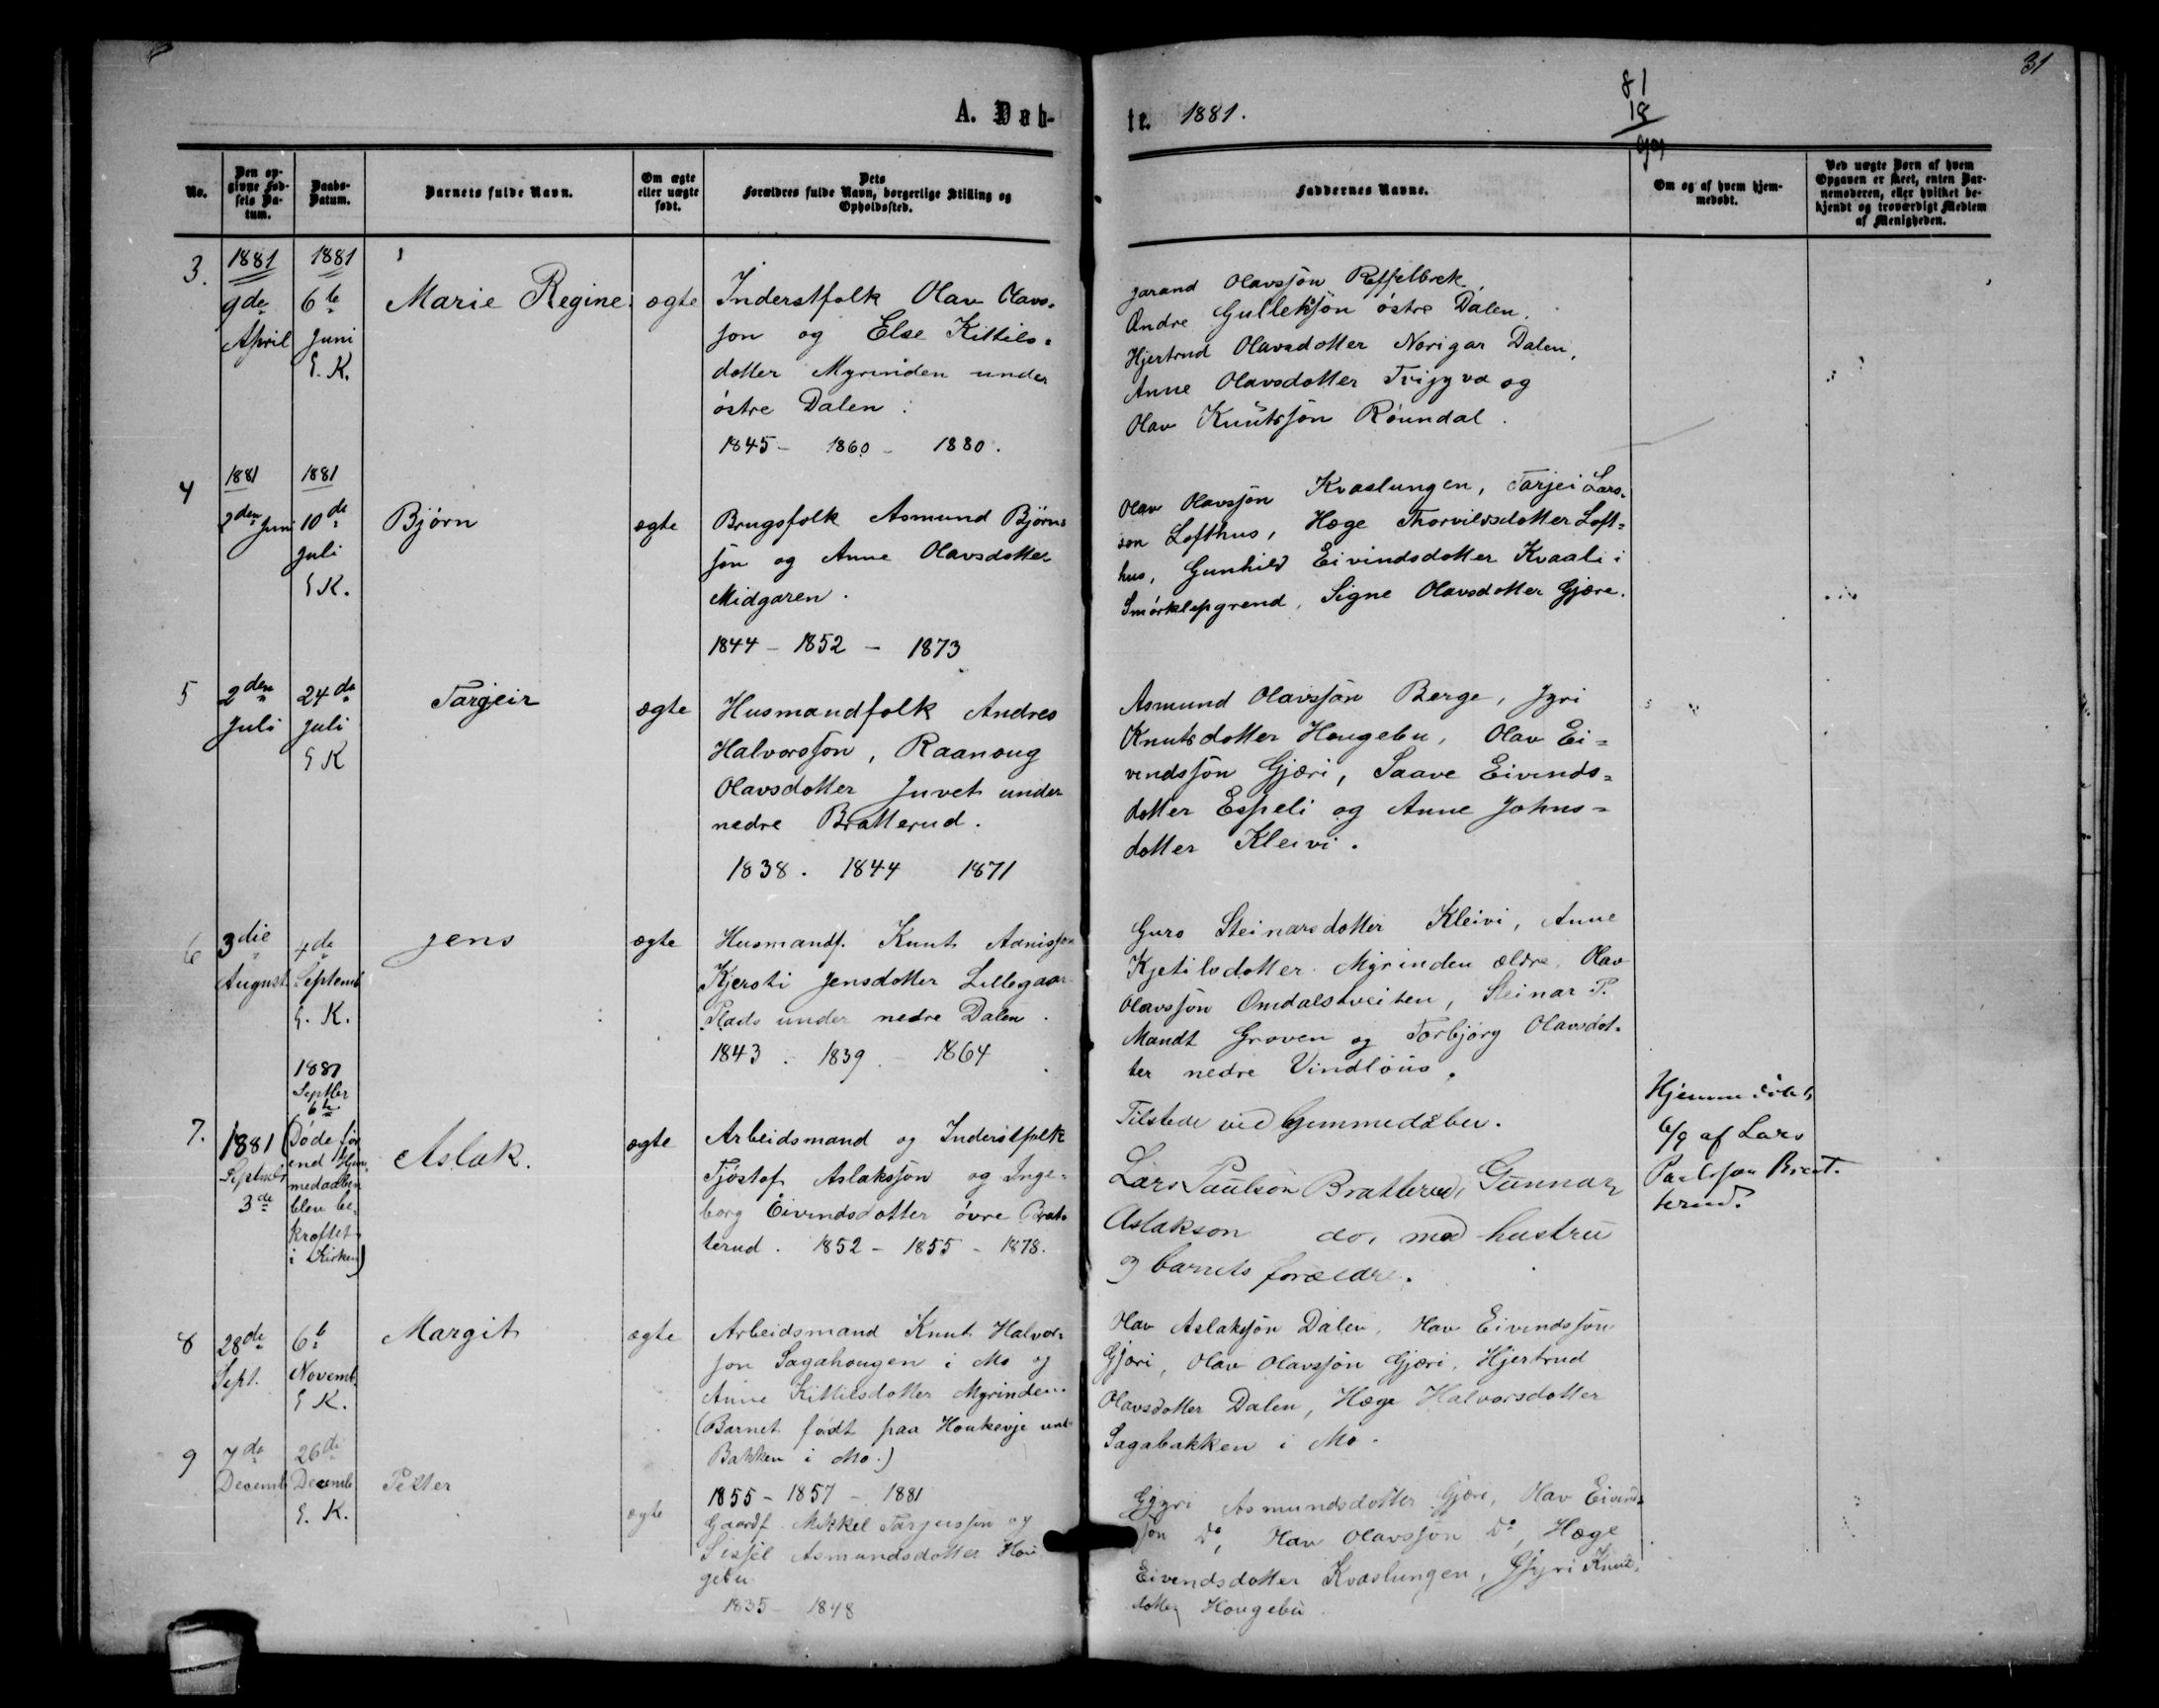 31
81
18
A. Dab-
te. 1881.
No.
Den op-
givne Fød-
sels Da-
tum.
Daabs-
Datum.
Barnets fulde Navn.
Om ægte
eller uægte
født.
Dets
Forældres fulde Navn, borgerlige Stilling og
Opholdssted.
Faddernes Navne.
Om og af hvem hjem-
medøbt.
Ved uægte Børn af hvem
Opgaven er skeet, enten Bar-
nemoderen, eller hvilket be-
kjendt og troværdigt Medlem
af Menigheden.
3.
1881
9de
April
1881
6te
Juni
E. K.
Marie Regine
ægte
Inderstfolk Olav Olavs-
søn og Else Kittils-
dotter Myrinden under
østre Dalen.
1845 - 1860 - 1880.
Jarand Olavssøn
Andre Gulleksøn østre Dalen,
Hjertrud Olavsdotter Norigar Dalen,
Anne Olavsdotter og
Olav Knutssøn Røundal.
4
1881
2den Juni
1881
10de
Juli
E K.
Bjørn
ægte
Brugsfolk Asmund Bjørns
søn og Anne Olavsdotter
Midgaren.
1844 - 1852 - 1873
Olav Olavssøn Kvaslungen, Tarjei Lars-
son Lofthus, Hæge Thorvilsdotter Loft-
hus, Gunhild Eivindsdotter Kvaali i
Smørklepgrend, Signe Olavsdotter Gjære.
5
2den
Juli
24de
Juli
E K
Targeir
ægte
Husmandfolk Andres
Halvorssøn, Raanoug
Olavsdotter Juvet under
nedre Bratterud.
1838. 1844 1871
Asmund Olavssøn Berge, Jyri
Knutsdotter Hougebu, Olav Ei-
vendssøn Gjæri, Saave Eivends-
dotter Espeli og Anne Johns-
dotter Kleivi.
6
3die
August
4de
Septemb
E. K.
Jens
ægte
Husmandf. Knut
Kjersti Jensdotter Lillegaar
Plads under nedre Dalen.
1843 - 1839 - 1864
Guro Steinarsdotter Kleivi, Anne
Kjetilsdotter Myrinden ældre, Olav
Olavssøn Omdalstveiten, Steinar P.
Mandt Groven og Torbjørg Olavsdot-
ter nedre Vindløus.
7.
1881
Septemb
3de
1881
Septbr
6te
(Døde før
end Hjem
medaaben
blev be-
kræftet
i Kirken)
Aslak.
ægte
Arbeidsmand og Inderstfolk
Tjøstof Aslaksøn og Inge-
borg Eivindsdotter øvre Brat-
terud. 1852 - 1855 - 1878.
Tilstede ved hjemmedåben.
Lars Paulson Bratterud, Gunnar
Aslakson do, med hustru
og barnets forældre.
Hjemmedöbt
6/9 af Lars
Paulsøn Brat-
terud.
8
28de
Sept.
6te
Novemb.
E K.
Margit
ægte
Arbeidsmand Knut Halvor-
søn Sagahougen i Mo og
Anne Kittilsdotter Myrinden.
(Barnet født paa Houkevje und
Bakken i Mo.)
1855 - 1857 - 1881
Olav Aslaksøn Dalen, Olav Eivindssøn
Gjæri, Olav Olavssøn Gjæri, Hjertrud
Olavsdotter Dalen, Hæge Halvorsdotter
Sagabakken i Mo.
9
7de
Decemb
26de
Decemb
E. K.
Petter
ægte
Gaardf. Mikkel Tarjeissøn og
Sissel Asmundsdotter Hou
gebu
1835 - 1848
Gjyri Asmundsdotter Gjære, Olav Eivind-
søn Do, Olav Olavssøn Do, Hæge
Eivendsdotter Kvaslungen, Gjyri Knut-
dotter Hougebu.